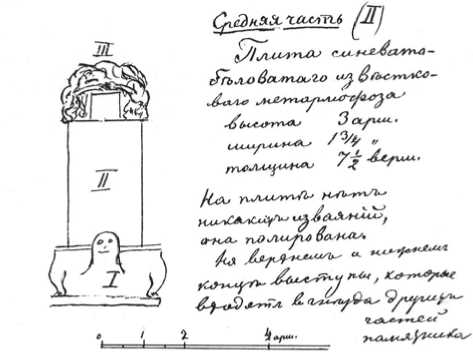 III
II
I
0 1 2 4 арш.
Средняя часть (II)
Плита синевато-
бѣловатаго известко-
ваго метарморфоза
высота 3 арш.
ширина 1 3/4 "
толщина 7 1/2 верш.
На плитѣ нѣтъ
никакихъ изваяній,
она полирована.
На верхнемъ и нижнемъ
концѣ выступы, которые
входятъ в гнѣзда другихъ
частей
памятника